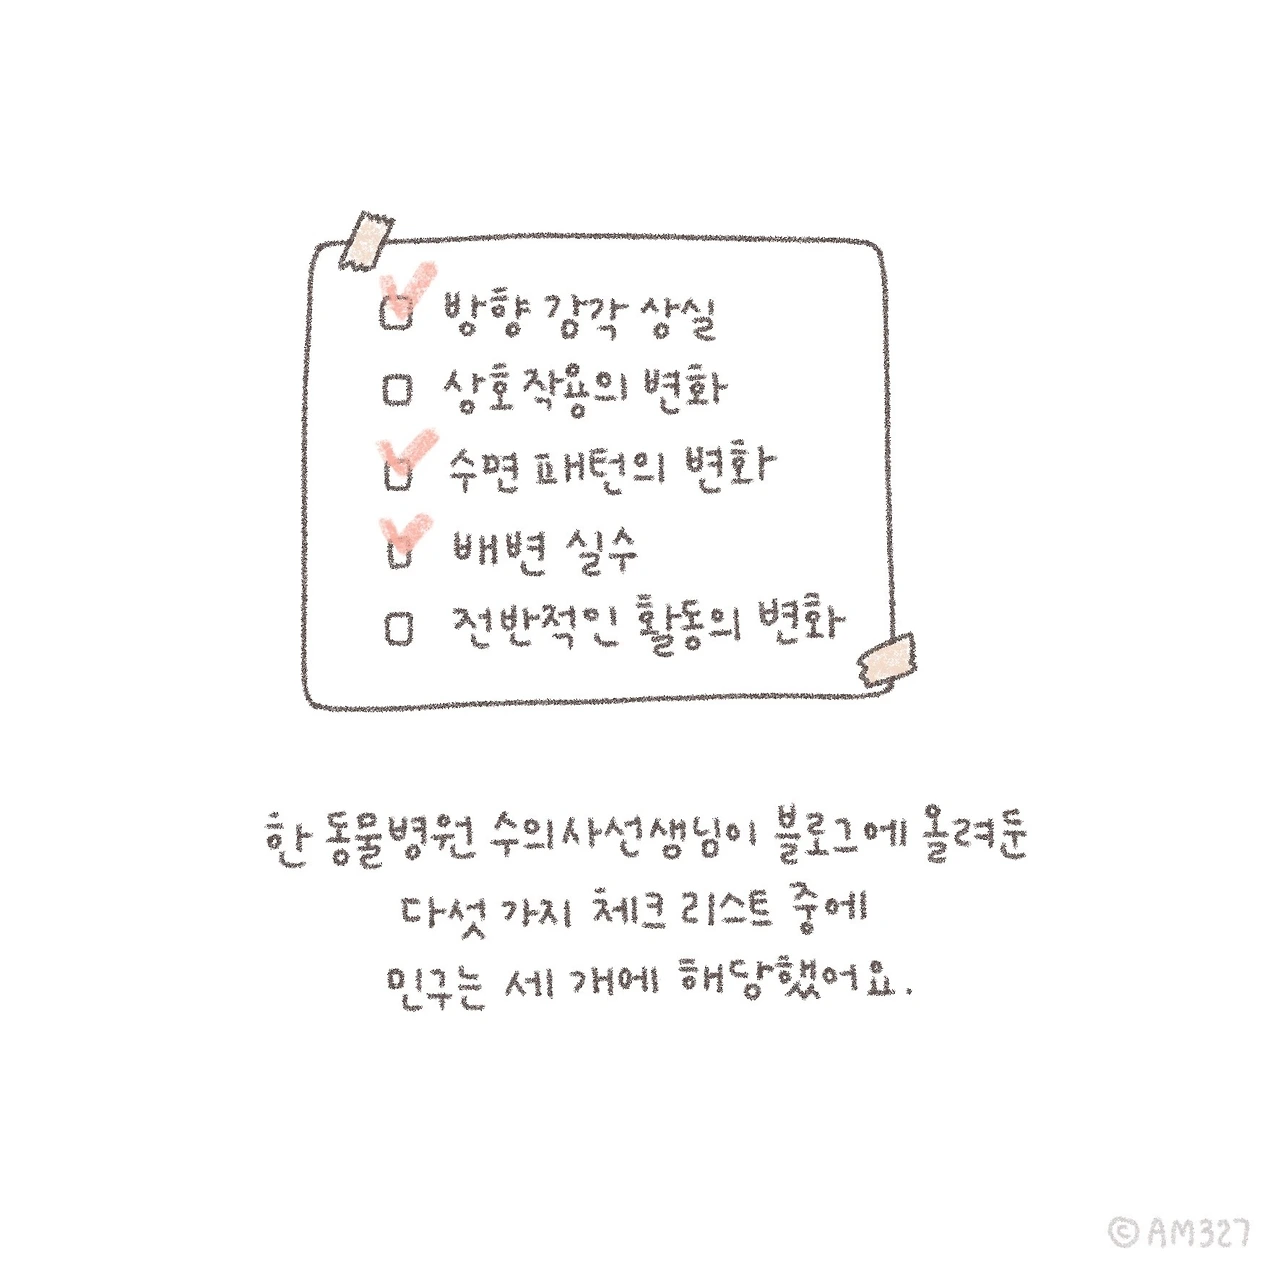 방향 감각 상실
상호작용의 변화
수면 패턴의 변화
배변 실수
전반적인 활동의 변화
한 동물병원 수의사선생님이 블로그에 올려둔
다섯 가지 체크 리스트 중에
민구는 세 개에 해당했어요.
© AM327